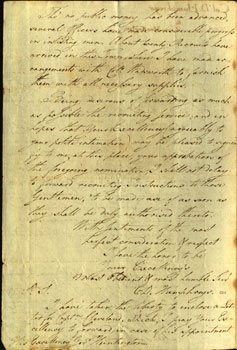 Tho no public money has been advanced,
several Officers have made considerable progress
in inlisting men. About twenty Recruits have
arrived in this town, whom I have made ar-
rangements with to furnish
them with all necessary supplies.
Being desirous of forwarding as much
as possible the recruiting service, and in
hopes that your Excellency agreeably to
your polite intimation, may be pleased to signi-
fy to me, at this place, your approbation of
the foregoing nomination, I shall not delay
to forward recruiting instructions to those
Gentlemen, to be made use of as soon as
they shall be duly authorised thereto.
With sentiments of the most
perfect consideration & respect
I have the honor to be
your Excellency's
Most Obedient & most humble Serv
P.S.
I have taken the liberty to inclose a Let-
ter for Capt. Cleveland, which I pray your Ex-
cellency to forward in case of his Appointment
His Excellency Gov. Huntington